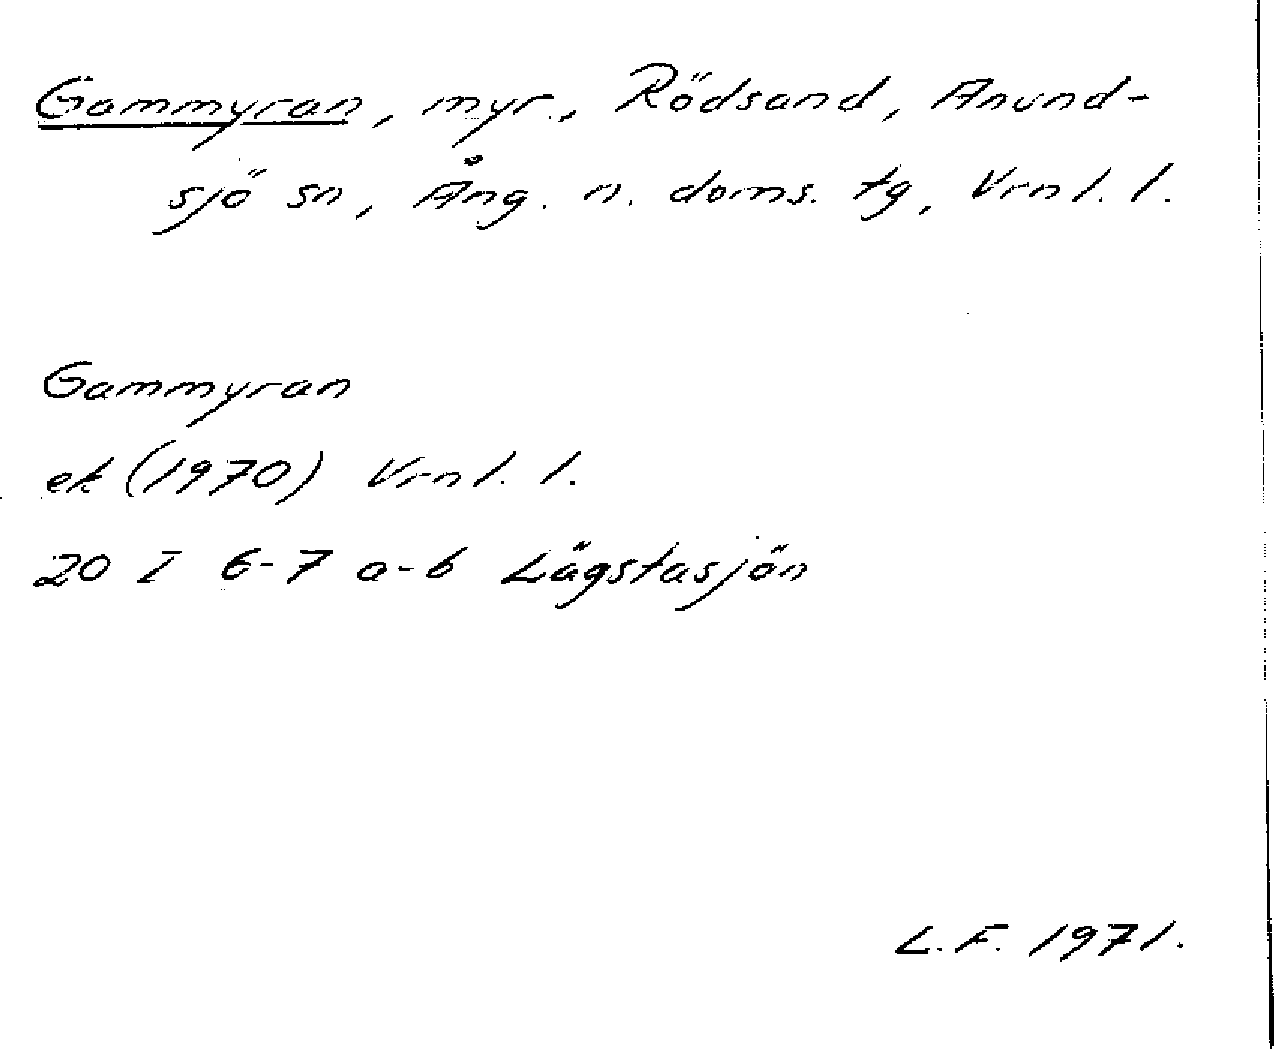 Gammyran, myr., Rödsand, Anund-
sjö sn, Ång. n. doms. tg, Vrnl. l.
Gammyran
ek (1970) Vrnl. l.
20 I 6-7 a-b Lägstasjön
L. F. 1971.